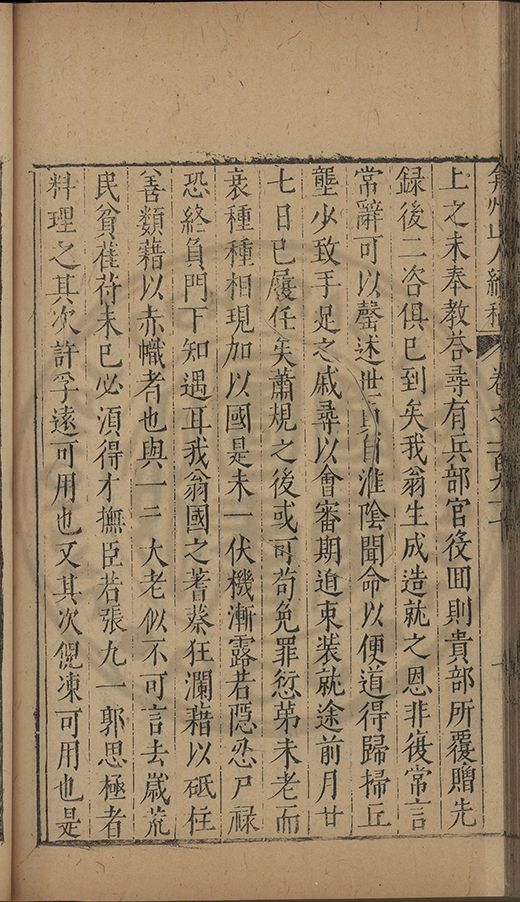 弇州山人續稿 卷之一百九十
上之未奉教荅尋有兵部官役囬則貴部所覆贈先
録後二咨俱已到矣我翁生成造就之恩非復常言
常辭可以罄述世貞自淮陰聞命以便道得歸掃丘
壟少致手足之戚尋以會審期迫束裝就途前月廿
七日已履任矣蕭規之後或可苟免罪愆苐未老而
衰種種相現加以國是未一伏機漸露若隱忍尸禄
恐終負門下知遇耳我翁國之蓍蔡狂瀾藉以砥柱
善類藉以赤幟者也與一二大老似不可言去歲荒
民貧萑苻未已必須得才撫臣若張九一郭思極者
料理之其次許孚遠可用也又其次倪凍可用也是